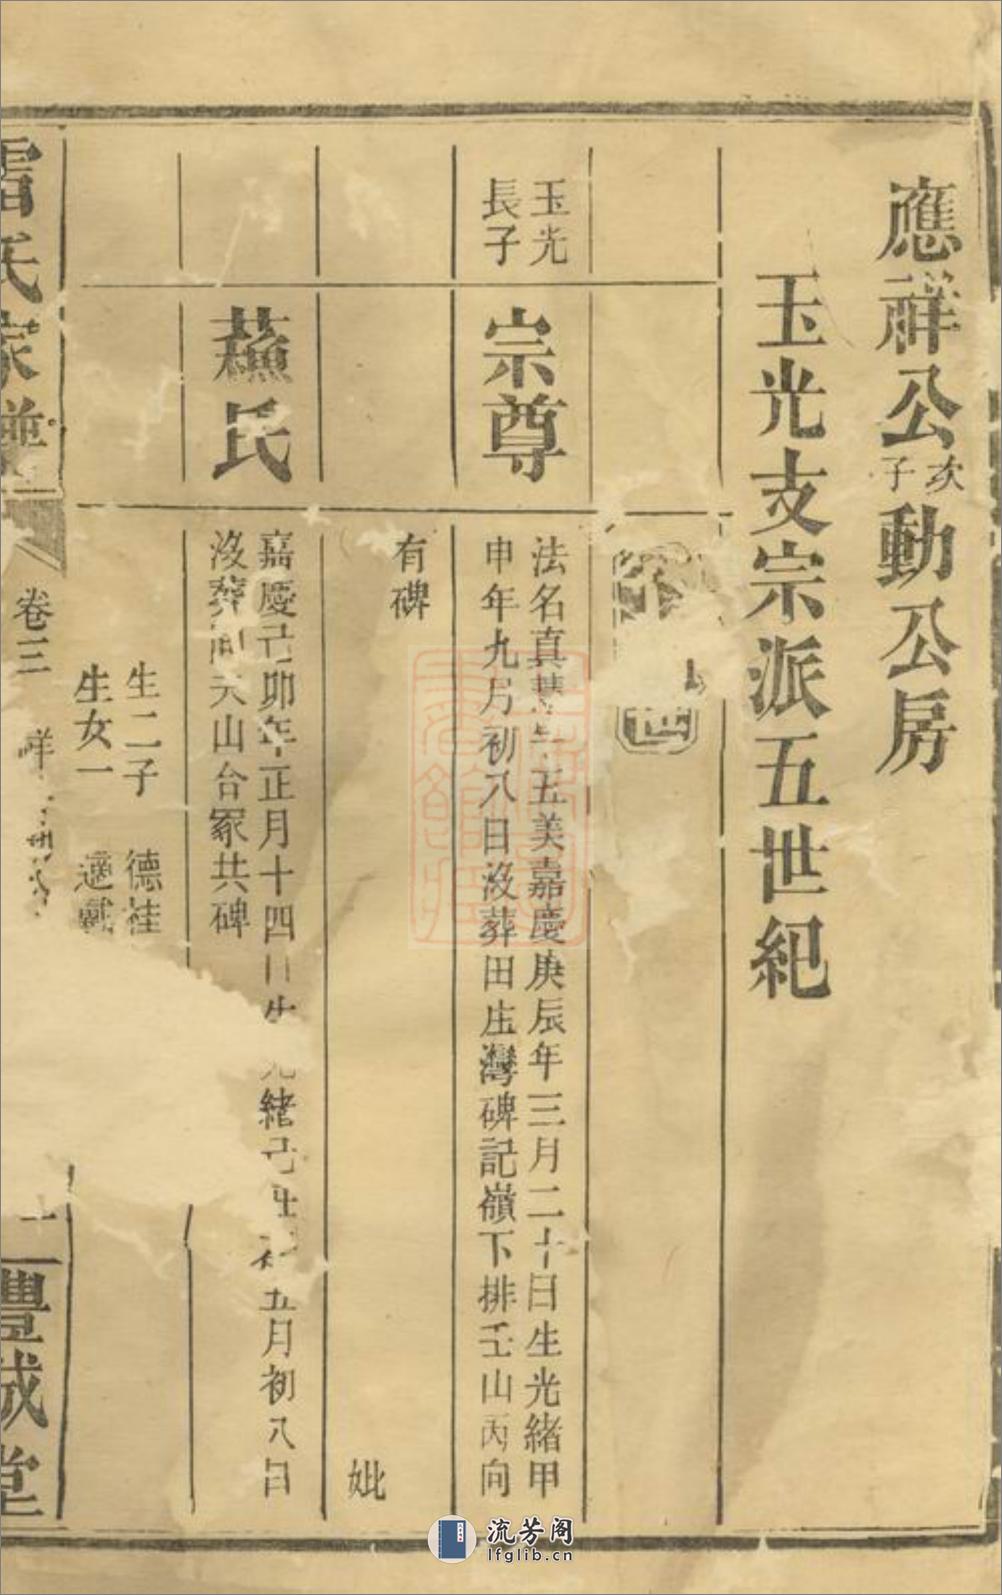 應祥公次子動公房
玉光支宗派五世紀
世
玉光
長子
宗尊
法名真慧行五美嘉慶庚辰年三月二十日生光緒甲
申年九月初八日沒葬田庄灣碑記嶺下排壬山丙向
有碑
妣
蘓氏
嘉慶己卯年正月十四日生光緒己年五月初八日
沒葬天山台冢共碑
生二子 德桂
生女一 適戴
雷氏家譜
卷三
祥
豐城堂
流芳阁
lfglib.cn